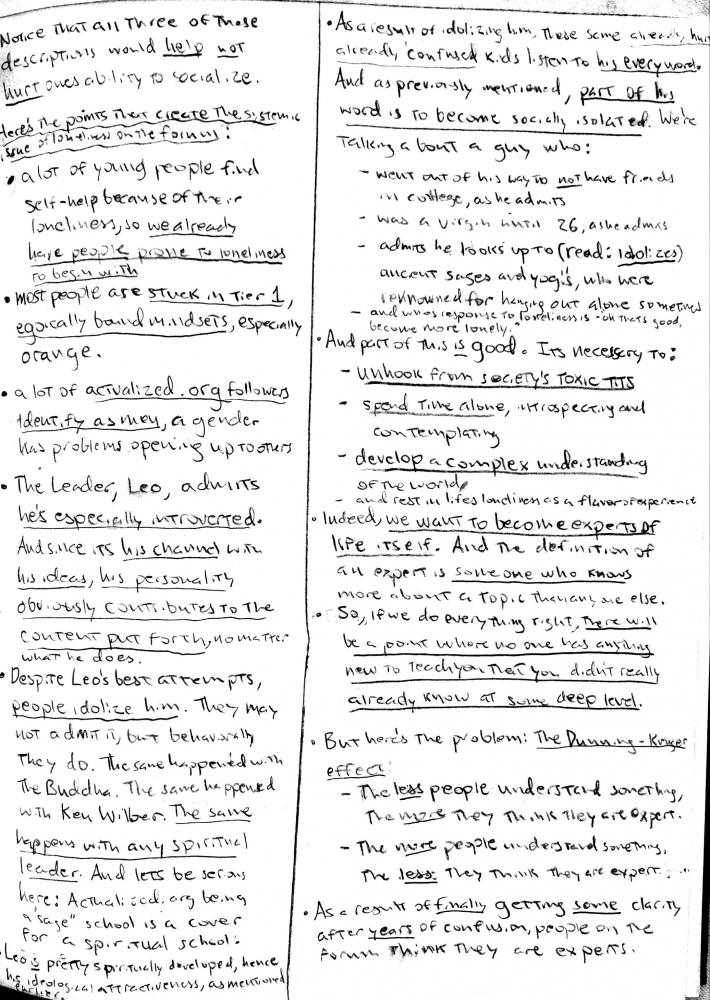 Notice that all three of those
descriptions would help not
hurt ones ability to socialize.
Here's the points that create the systemic
issue of loneliness on the forums:
• a lot of young people find
self-help because of their
loneliness, so we already
have people prone to loneliness
to begin with
• most people are stuck in Tier 1,
egoically bound mindsets, especially
orange.
• a lot of actualized.org followers
identify as men, a gender
has problems opening up to others
• The Leader, Leo, admits
he's especially introverted.
And since its his channel with
his ideas, his personality
obviously contributes to the
content put forth, no matter
what he does.
• Despite Leo's best attempts,
people idolize him. They may
not admit it, but behaviorally
they do. The same happened with
the Buddha. The same happened
with Ken Wilber. The same
happens with any spiritual
leader. And lets be serious
here: Actualized.org being
a "sage" school is a cover
for a spiritual school.
• Leo is pretty spiritually developed, hence
his ideological attractiveness, as mentioned
earlier.
• As a result of idolizing him, these same already, hurt
already, confused kids listen to his every word.
And as previously mentioned, part of his
word is to become socially isolated. We're
talking about a guy who:
- went out of his way to not have friends
in college, as he admits
- was a virgin until 26, as he admits
- admits he looks up to (read: idolizes)
ancient sages and yogis, who were
renowned for hanging out alone sometimes
- and whos response to loneliness is "oh thats good,
become more lonely."
• And part of this is good. Its necessary to:
- unhook from society's toxic tits
- spend time alone, introspecting and
contemplating
- develop a complex understanding
of the world
- and rest in lifes loneliness as a flavor of experience
• Indeed, we want to become experts of
life itself. And the definition of
an expert is someone who knows
more about a topic than anyone else.
• So, if we do everything right, there will
be a point where no one has anything
new to teach you that you didn't really
already know at some deep level.
• But here's the problem: The Dunning-Kruger
effect!
- The less people understand something,
the more they think they are expert.
- The more people understand something,
the less they think they are expert...
• As a result of finally getting some clarity
after years of confusion, people on the
forum think they are experts.